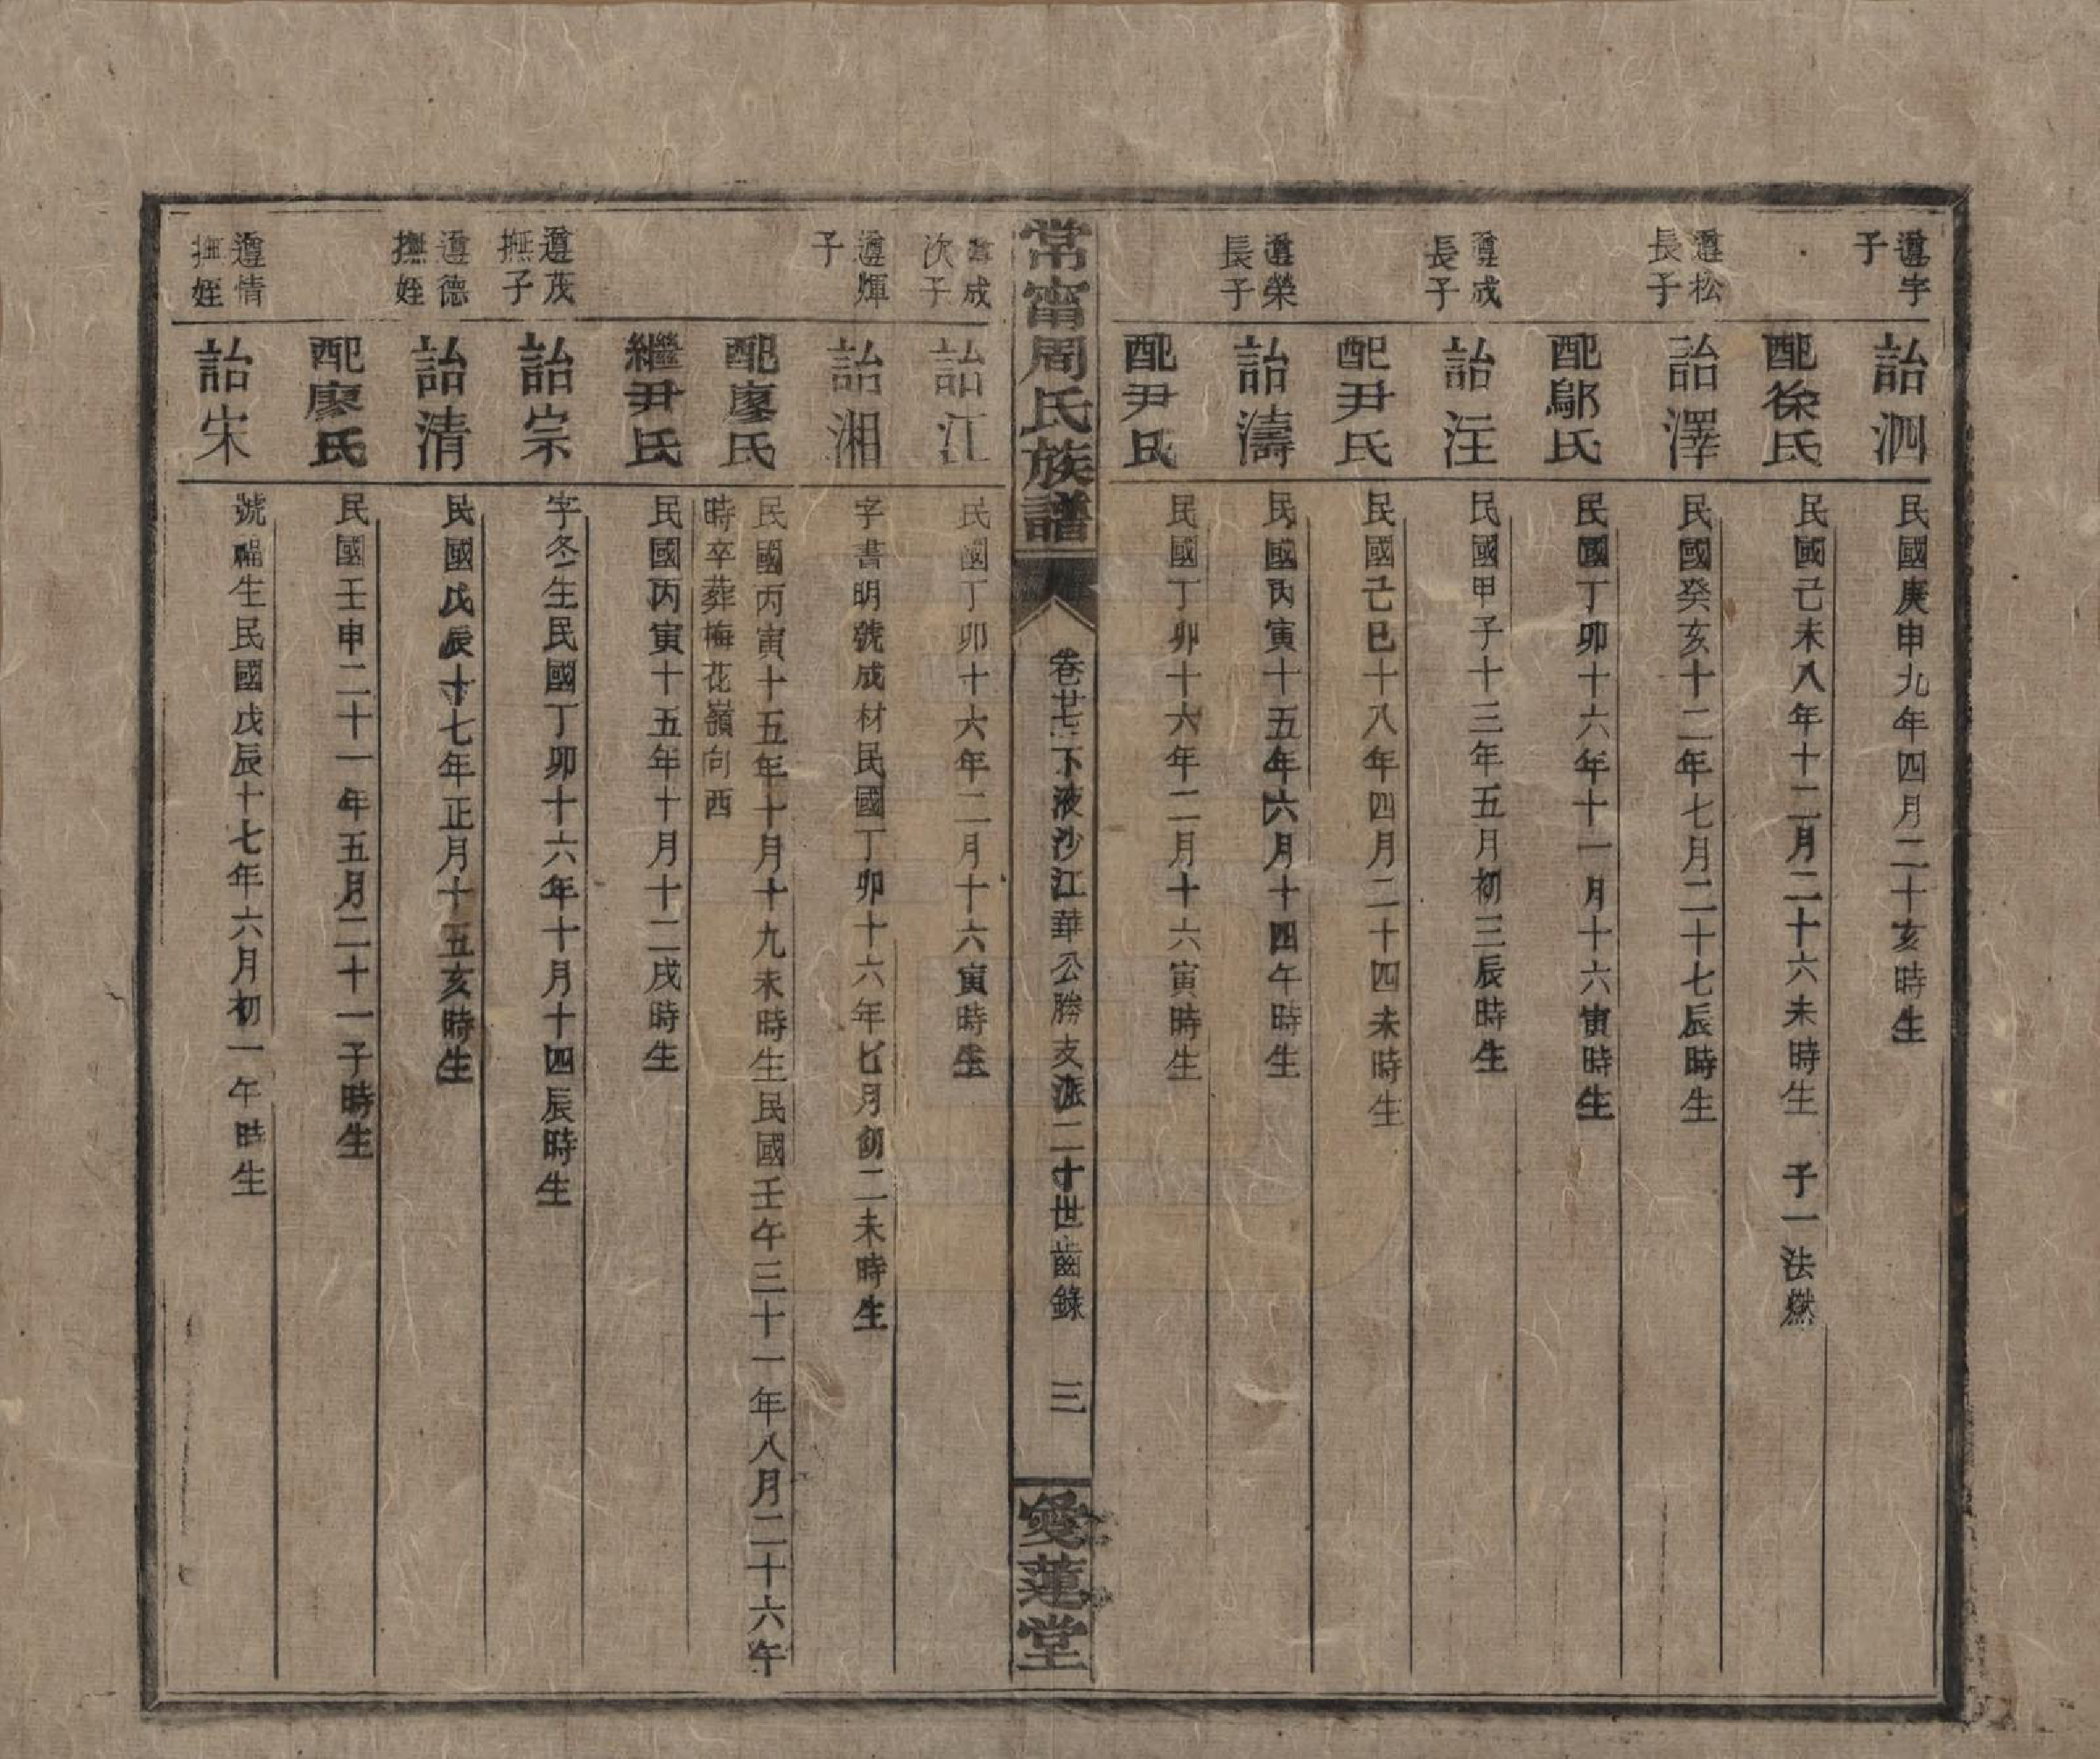 遵宇
子
詒泗
民國庚申九年四月二十亥時生
配徐氏
民國己未八年十二月二十六未時生　子一法燃
遵松
長子
詒澤
民國癸亥十二年七月二十七辰時生
配鄔氏
民國丁卯十六年十一月十六寅時生
遵成
長子
詒注
民國甲子十三年五月初三辰時生
配尹氏
民國己巳十八年四月二十四未時生
遵榮
長子
詒濤
民國丙寅十五年六月十四午時生
配尹氏
民國丁卯十六年二月十六寅時生
常甯周氏族譜
卷廿七下液沙江華公勝支派二十世齒錄　三
愛蓮堂
遵成
次子
詒江
民國丁卯十六年二月十六寅時生
遵輝
子
詒湘
字書明號成材民國丁卯十六年七月初二未時生
配廖氏
民國丙寅十五年十月十九未時生民國壬午三十一年八月二十六午
時卒葬梅花嶺向西
繼尹氏
民國丙寅十五年十月十二戌時生
遵茂
撫子
詒宗
字冬生民國丁卯十六年十月十四辰時生
遵德
撫姪
詒清
民國戊辰十七年正月十五亥時生
配廖氏
民國壬申二十一年五月二十一子時生
遵情
撫姪
詒宋
號福生民國戊辰十七年六月初一午時生